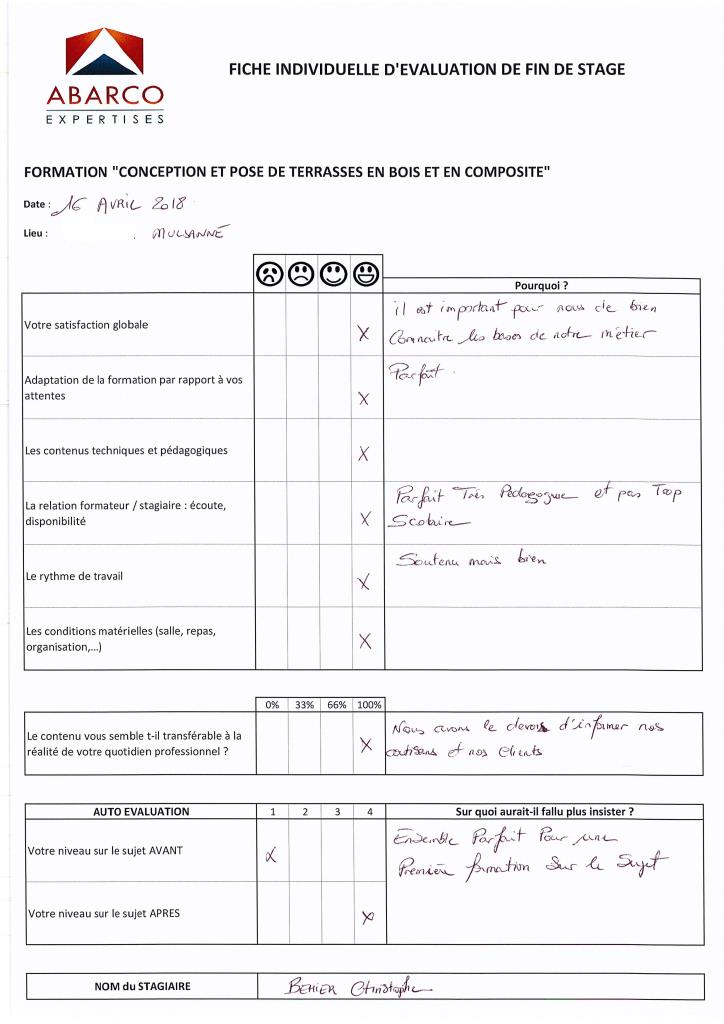 ABARCO
EXPERTISES
FICHE INDIVIDUELLE D'EVALUATION DE FIN DE STAGE
FORMATION "CONCEPTION ET POSE DE TERRASSES EN BOIS ET EN COMPOSITE"
Date : 16 AVRIL 2018
Lieu : . MULSANNE
Pourquoi ?
Votre satisfaction globale
X
il est important pour nous de bien
Connaitre les bases de notre métier
Adaptation de la formation par rapport à vos
attentes
X
Parfait.
Les contenus techniques et pédagogiques
X
La relation formateur / stagiaire : écoute,
disponibilité
X
Parfait Très Pédagogue et pas Trop
Scolaire
Le rythme de travail
X
Soutenu mais bien
Les conditions matérielles (salle, repas,
organisation,...)
X
0% 33% 66% 100%
Le contenu vous semble t-il transférable à la
réalité de votre quotidien professionnel ?
X
Nous avons le devois d'informer nos
artisans et nos clients
AUTO EVALUATION 1 2 3 4 Sur quoi aurait-il fallu plus insister ?
Votre niveau sur le sujet AVANT
X
Ensemble Parfait Pour une
Première formation Sur le Sujet
Votre niveau sur le sujet APRES
X
NOM du STAGIAIRE BEHIER Christophe